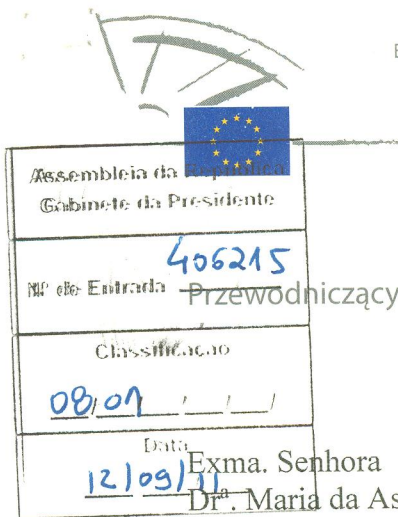 Assembleia da República
Gabinete da Presidente
Nº de Entrada 406215
Przewodniczący
Classificação
08/01/ / /
Data
12/09/11
Exma. Senhora
Drª. Maria da As